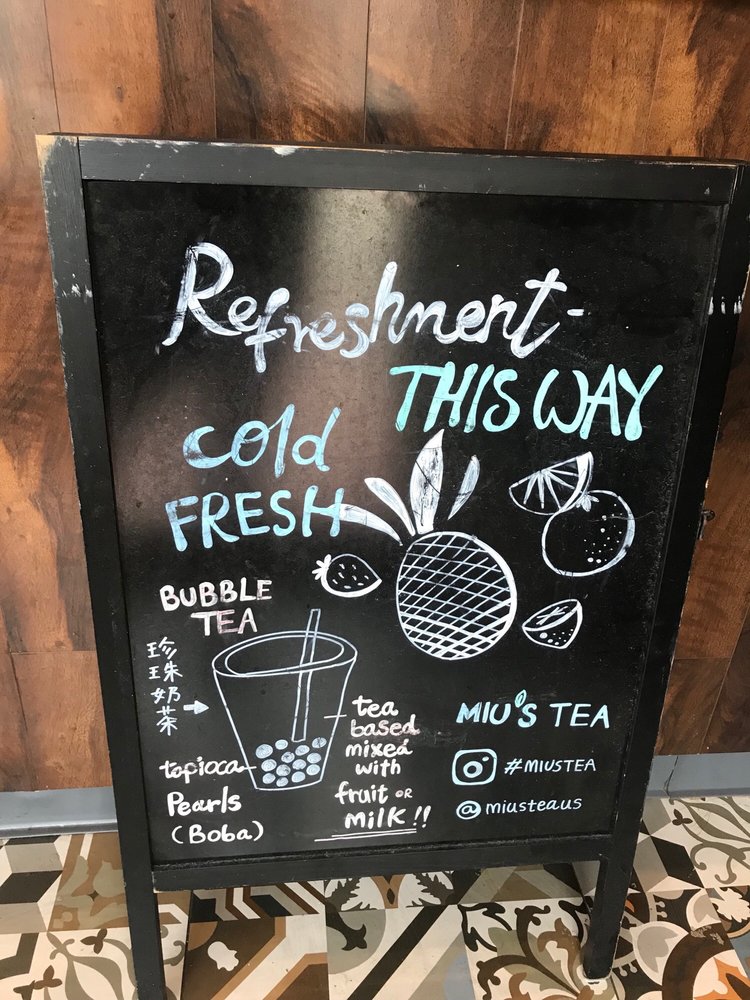 Refreshment-
THIS WAY
cold
FRESH
BUBBLE
TEA
珍珠奶茶
tapioca
Pearls
(Boba)
tea
based
mixed
with
fruit OR
MILK!!
MIU'S TEA
#MIUSTEA
@miusteaus